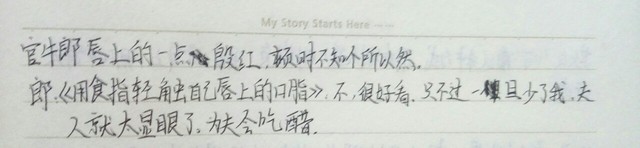 My Story Starts Here
官牛郎唇上的一点殷红,顿时不知个所以然.
郎:《用食指轻触自己唇上的口脂》,不,很好看.只不过一旦少了我,夫
人就太显眼了,为夫会吃醋.